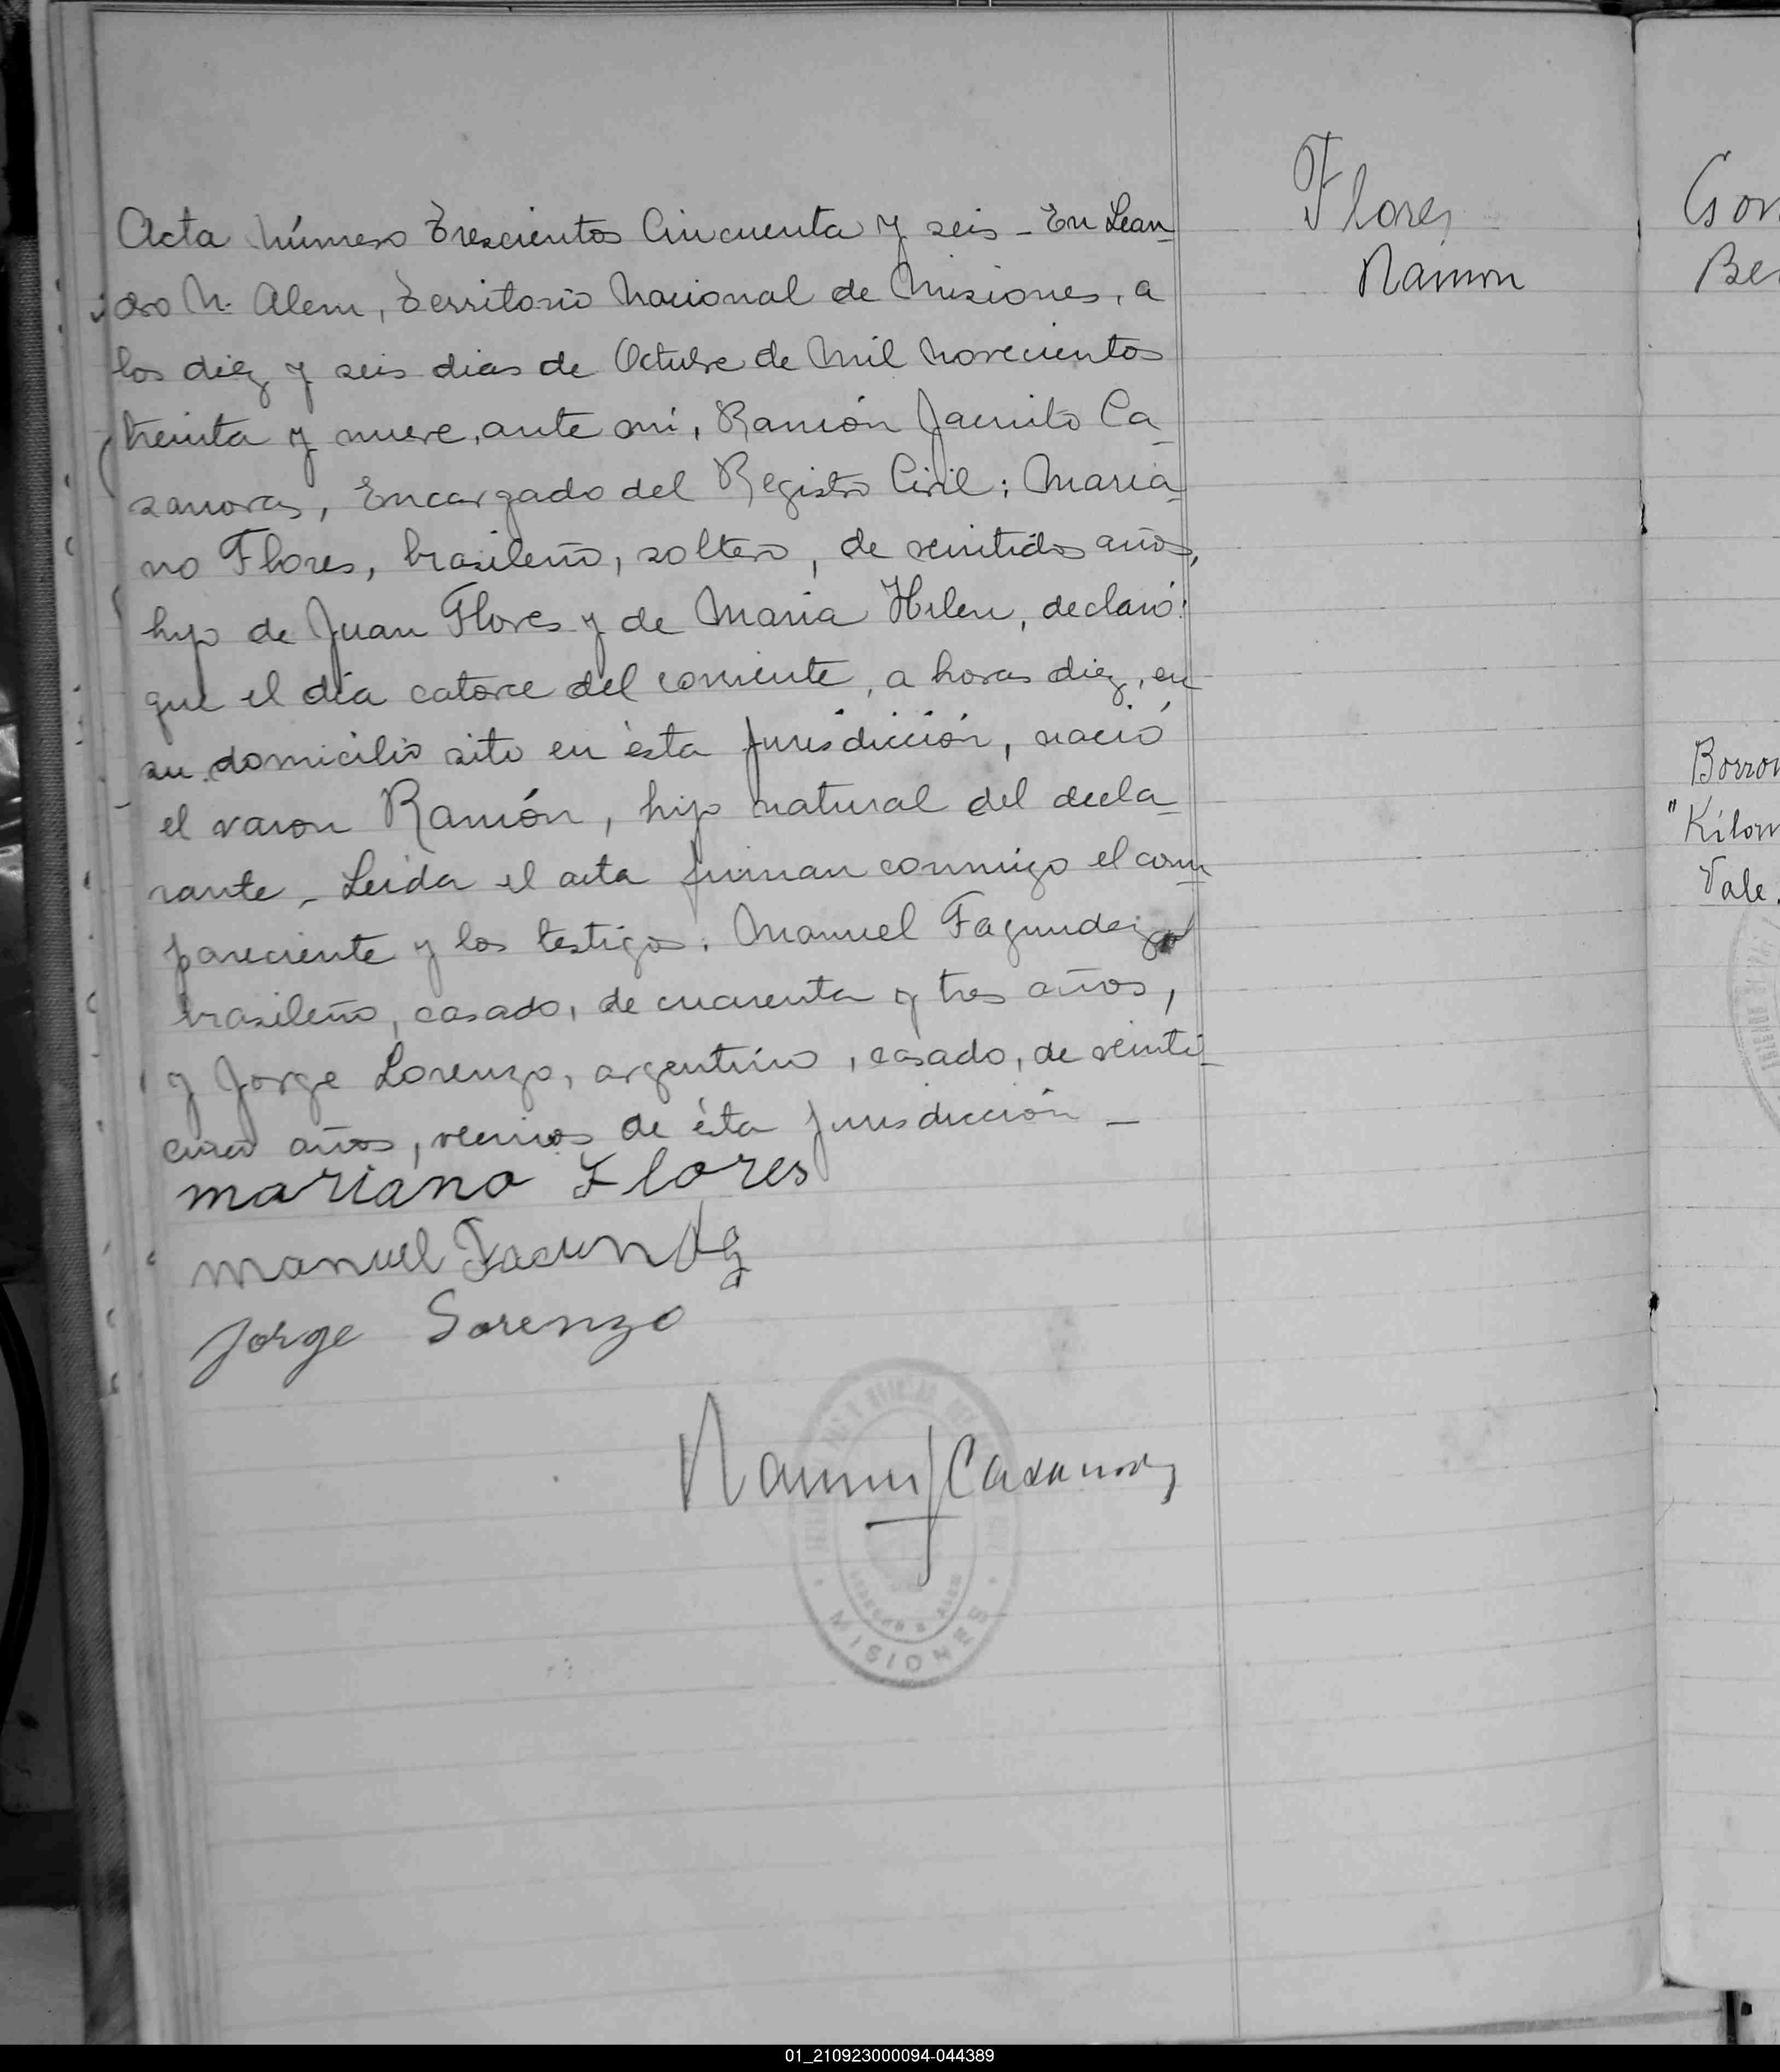 Acta número Trescientos Cincuenta y seis - En Lean
dro N. Alem, Territorio Nacional de Misiones, a
los diez y seis dias de Octubre de Mil Novecientos
treinta y nueve, ante mí, Ramón Jacinto Ca
sanovas, Encargado del Registro Civil; Maria
no Flores, brasileño, soltero, de veintidos años,
hijo de Juan Flores y de Maria Hilen, declaró:
que el día catorce del corriente, a horas diez, en
su domicilio sito en ésta Jurisdicción, nació
el varon Ramón, hijo natural del decla
rante - Leida el acta firman conmigo el com
pareciente y los testigos: Manuel Fagundez
brasileño, casado, de cuarenta y tres años,
y Jorge Lorenzo, argentino, casado, de veinti
cinco años, vecinos de ésta Jurisdicción -
mariano Flores
manuel
Jorge Lorenzo
Ramon J Casanovas
MISIONES
Flores
Ramon
Gon
Be
Borron
"Kilom
Vale.
01_210923000094-044389